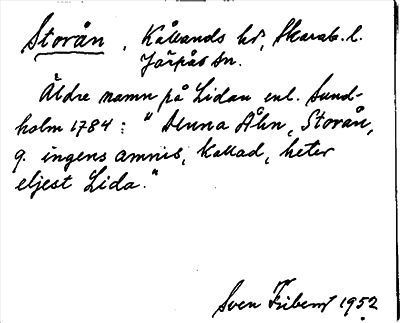 Storån, Kållands hd, Skarab. l.
Järpås sn.
Äldre namn på Lidan enl. Sund-
holm 1784: "Denna Åhn, Storån,
q. ingens amnis, kallad, heter
eljest Lida."
Sven Fribert 1952